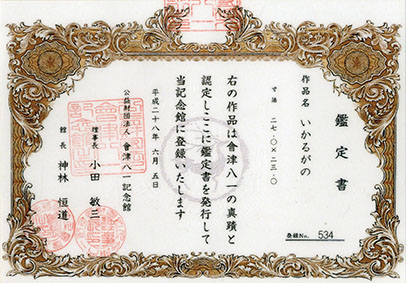 鑑定書
作品名 いかるがの
寸法 二七.〇×二三.〇
右の作品は會津八一の真蹟と
認定しここに鑑定書を発行して
当記念館に登録いたします
平成二十八年 六月 五日
公益財団法人 會津八一記念館
理事長 小田 敏三
館長 神林 恒道
登録No. 534